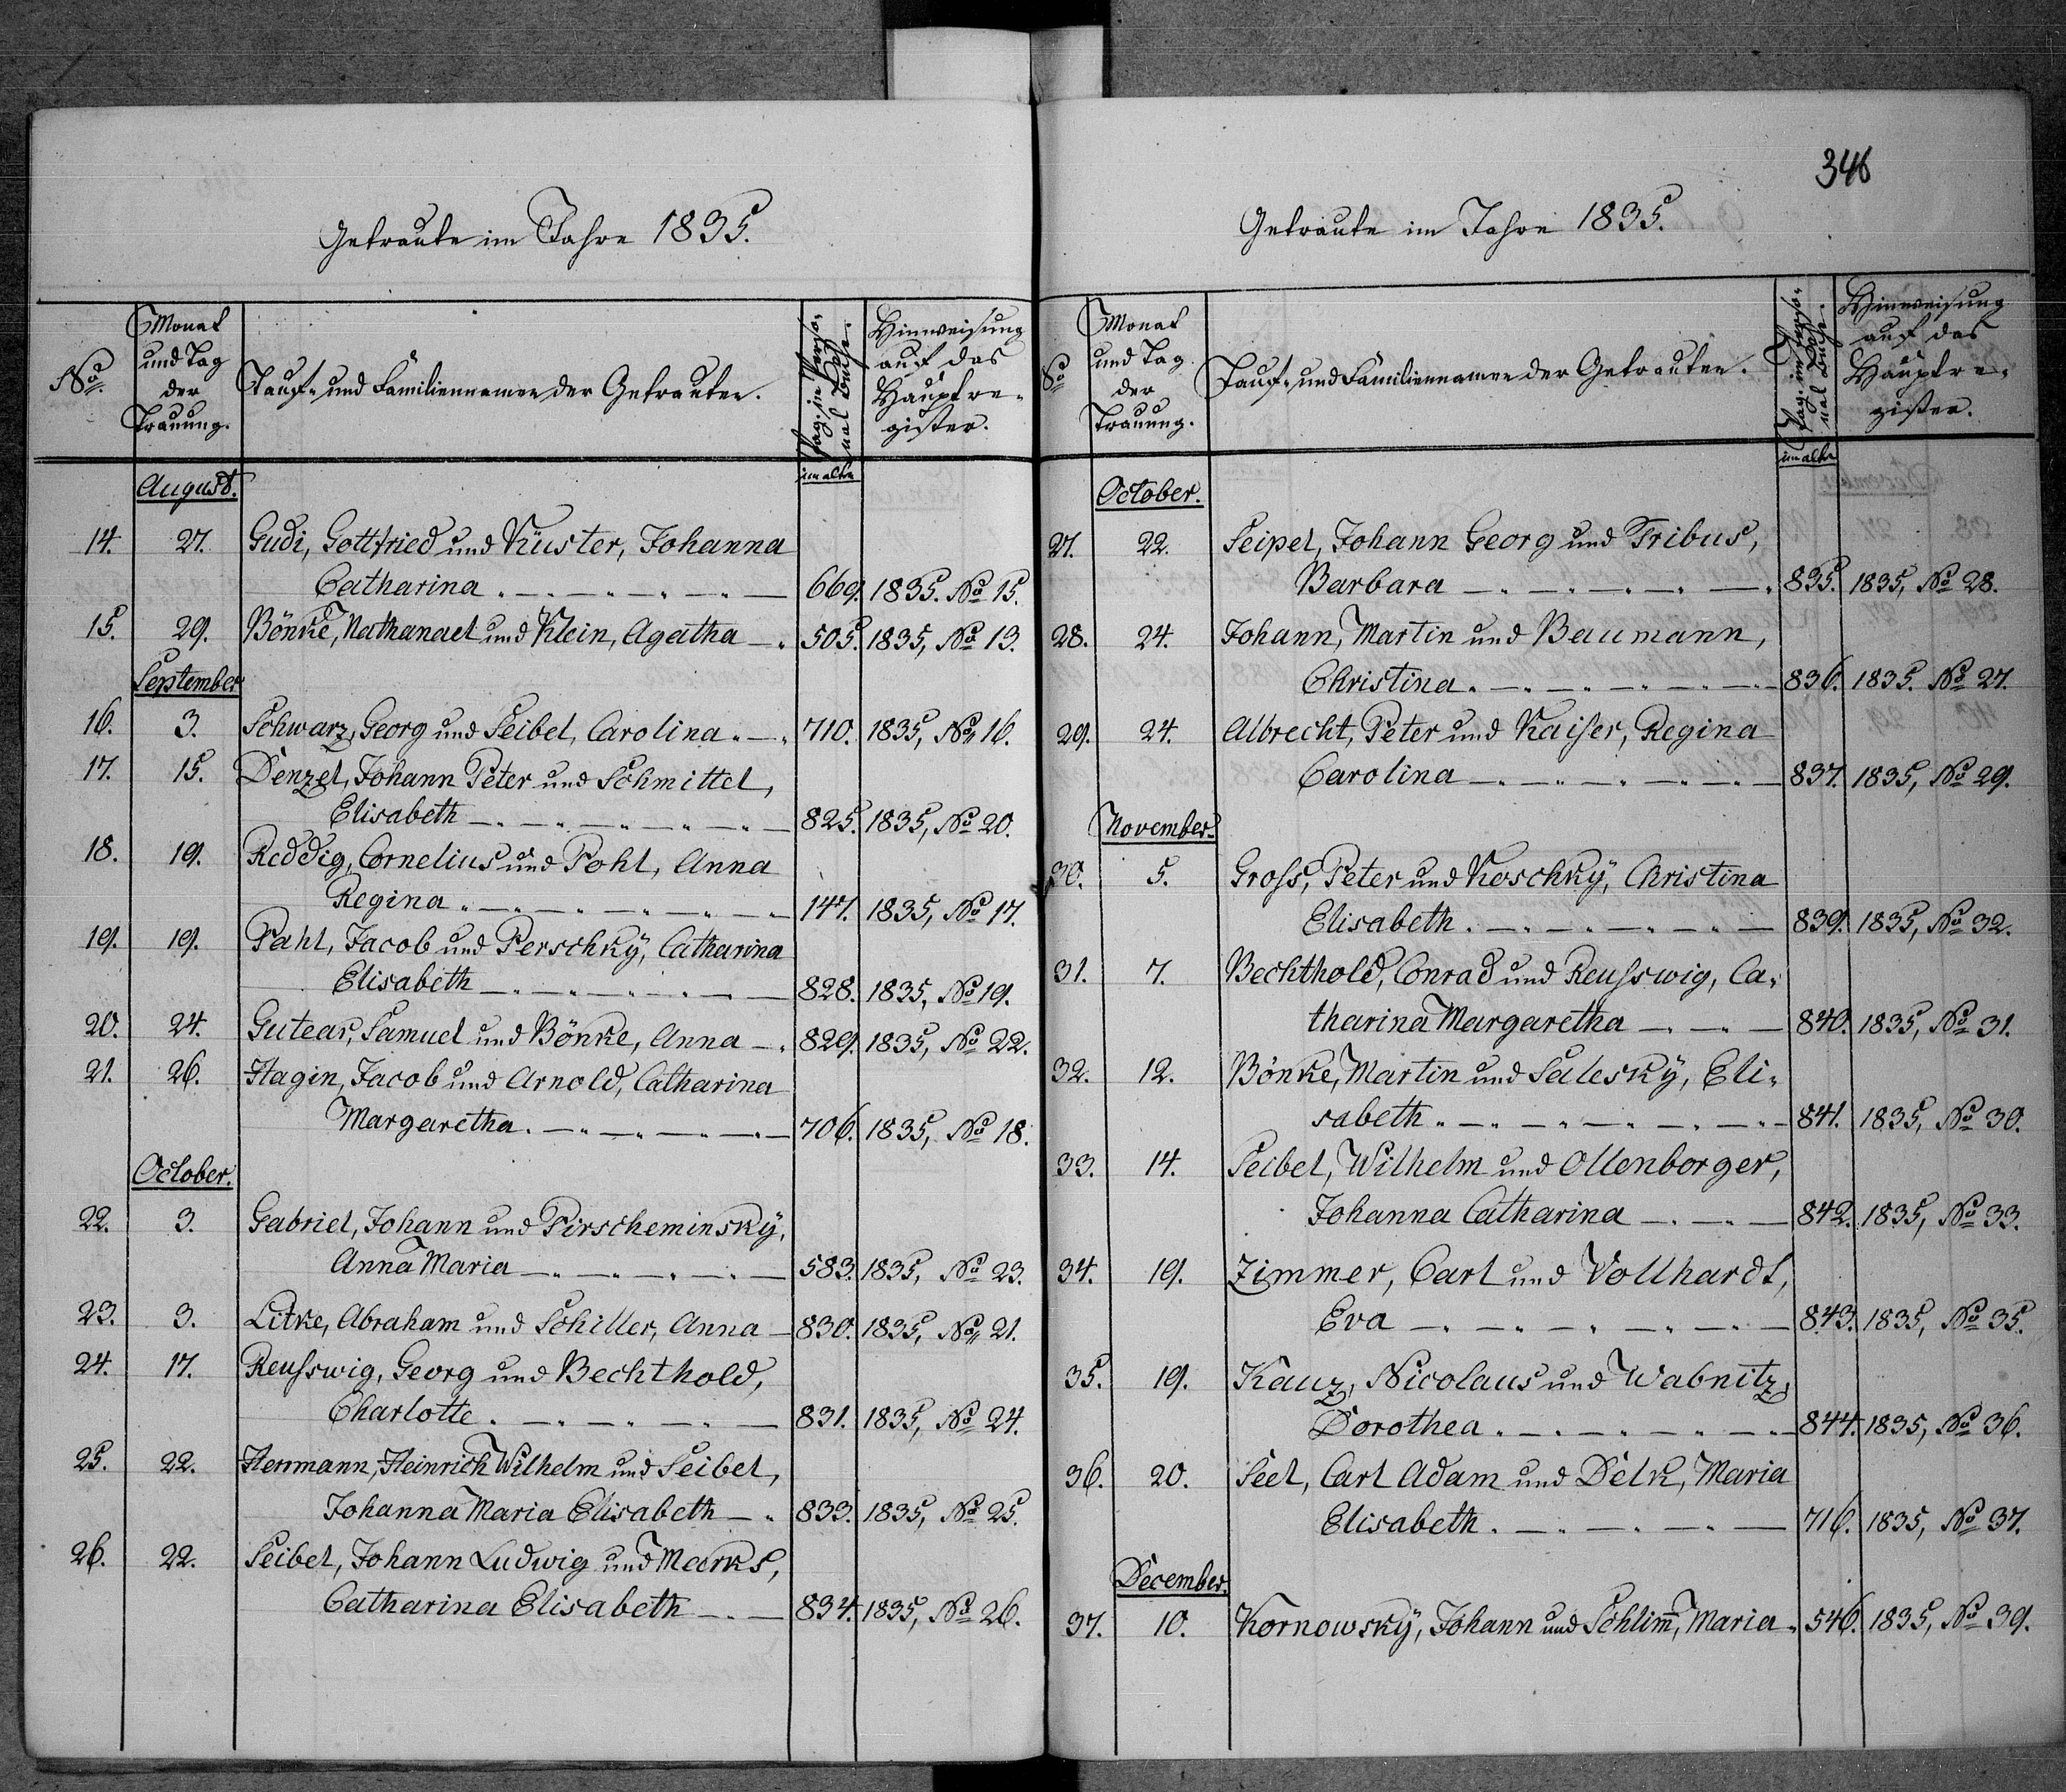 Getraute im Jahre 1835.
No.
Monat
und Tag
der
Trauung.
Tauf- und Familiennamen der Getrauten.
Pag. im Perso-
nal Buche.
Hinweisung
auf das
Hauptre-
gister.
im alten
August.
14. 27. Gudi, Gottfried und Küster, Johanna
Catharina 669. 1835. No 15.
15. 29. Bönke, Nathanael und Klein, Agatha 505. 1835, No 13.
September
16. 3. Schwarz, Georg und Seibel, Carolina 710. 1835, No 16.
17. 15. Denzel, Johann Peter und Schmittel,
Elisabeth 825. 1835, No 20.
18. 19. Reddig, Cornelius und Pohl, Anna
Regina 147. 1835, No 17.
19. 19. Pahl, Jacob und Perschkÿ, Catharina
Elisabeth 828. 1835, No 19.
20. 24. Gutear, Samuel und Bönke, Anna 829. 1835, No 22.
21. 26. Hagin, Jacob und Arnold, Catharina
Margaretha 706. 1835, No 18.
October.
22. 3. Gabriel, Johann und Pirscheminskÿ,
Anna Maria 583. 1835, No 23.
23. 3. Litke, Abraham und Schiller, Anna 830. 1835, No 21.
24. 17. Reußwig, Georg und Bechthold,
Charlotte 831. 1835, No 24.
25. 22. Herrmann, Heinrich Wilhelm und Seibel,
Johanna Maria Elisabeth 833. 1835, No 25.
26. 22. Seibel, Johann Ludwig und Marks,
Catharina Elisabeth 834. 1835, No 26.
346
Getraute im Jahre 1835.
No
Monat
und Tag
der
Trauung.
Tauf- und Familiennamen der Getrauten.
Pag. im Perso-
nal Buche.
Hinweisung
auf das
Hauptre-
gister.
im alten
October.
27. 22. Seipel, Johann Georg und Tribus,
Barbara 835. 1835, No 28.
28. 24. Johann, Martin und Baumann,
Christina 836. 1835. No 27.
29. 24. Albrecht, Peter und Kaiser, Regina
Carolina 837. 1835, No 29.
November.
30. 5. Groß, Peter und Koschkÿ, Christina
Elisabeth 839. 1835, No 32.
31. 7. Bechthold, Conrad und Reußwig, Ca-
tharina Margaretha 840. 1835, No 31.
32. 12. Bönke, Martin und Saleskÿ, Eli-
sabeth 841. 1835, No 30.
33. 14. Seibel, Wilhelm und Ollenborger,
Johanna Catharina 842. 1835, No 33.
34. 19. Zimmer, Carl und Vollhardt,
Eva 843. 1835, No 35.
35. 19. Kauz, Nicolaus und Wabnitz,
Dorothea 844. 1835, No 36.
36. 20. Seel, Carl Adam und Delk, Maria
Elisabeth 716. 1835, No 37.
December.
37. 10. Kornowskÿ, Johann und Schlim̅, Maria 546. 1835, No 39.